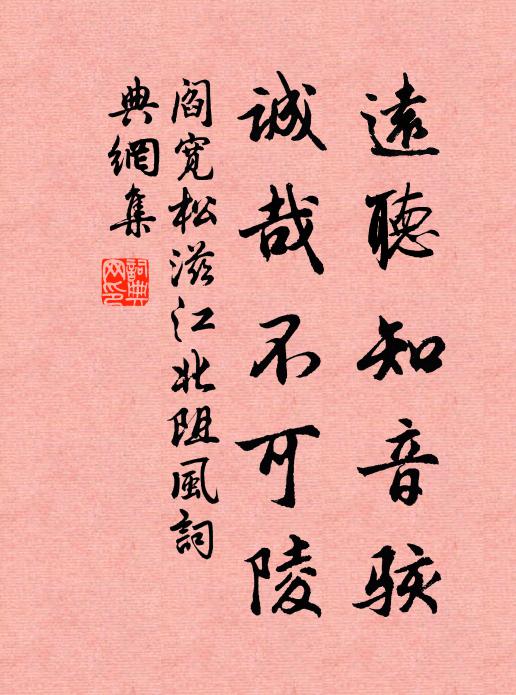 遠聽知音駭
誠哉不可陵
閻寬松滋江北阻風詞
典網集
詞典网印